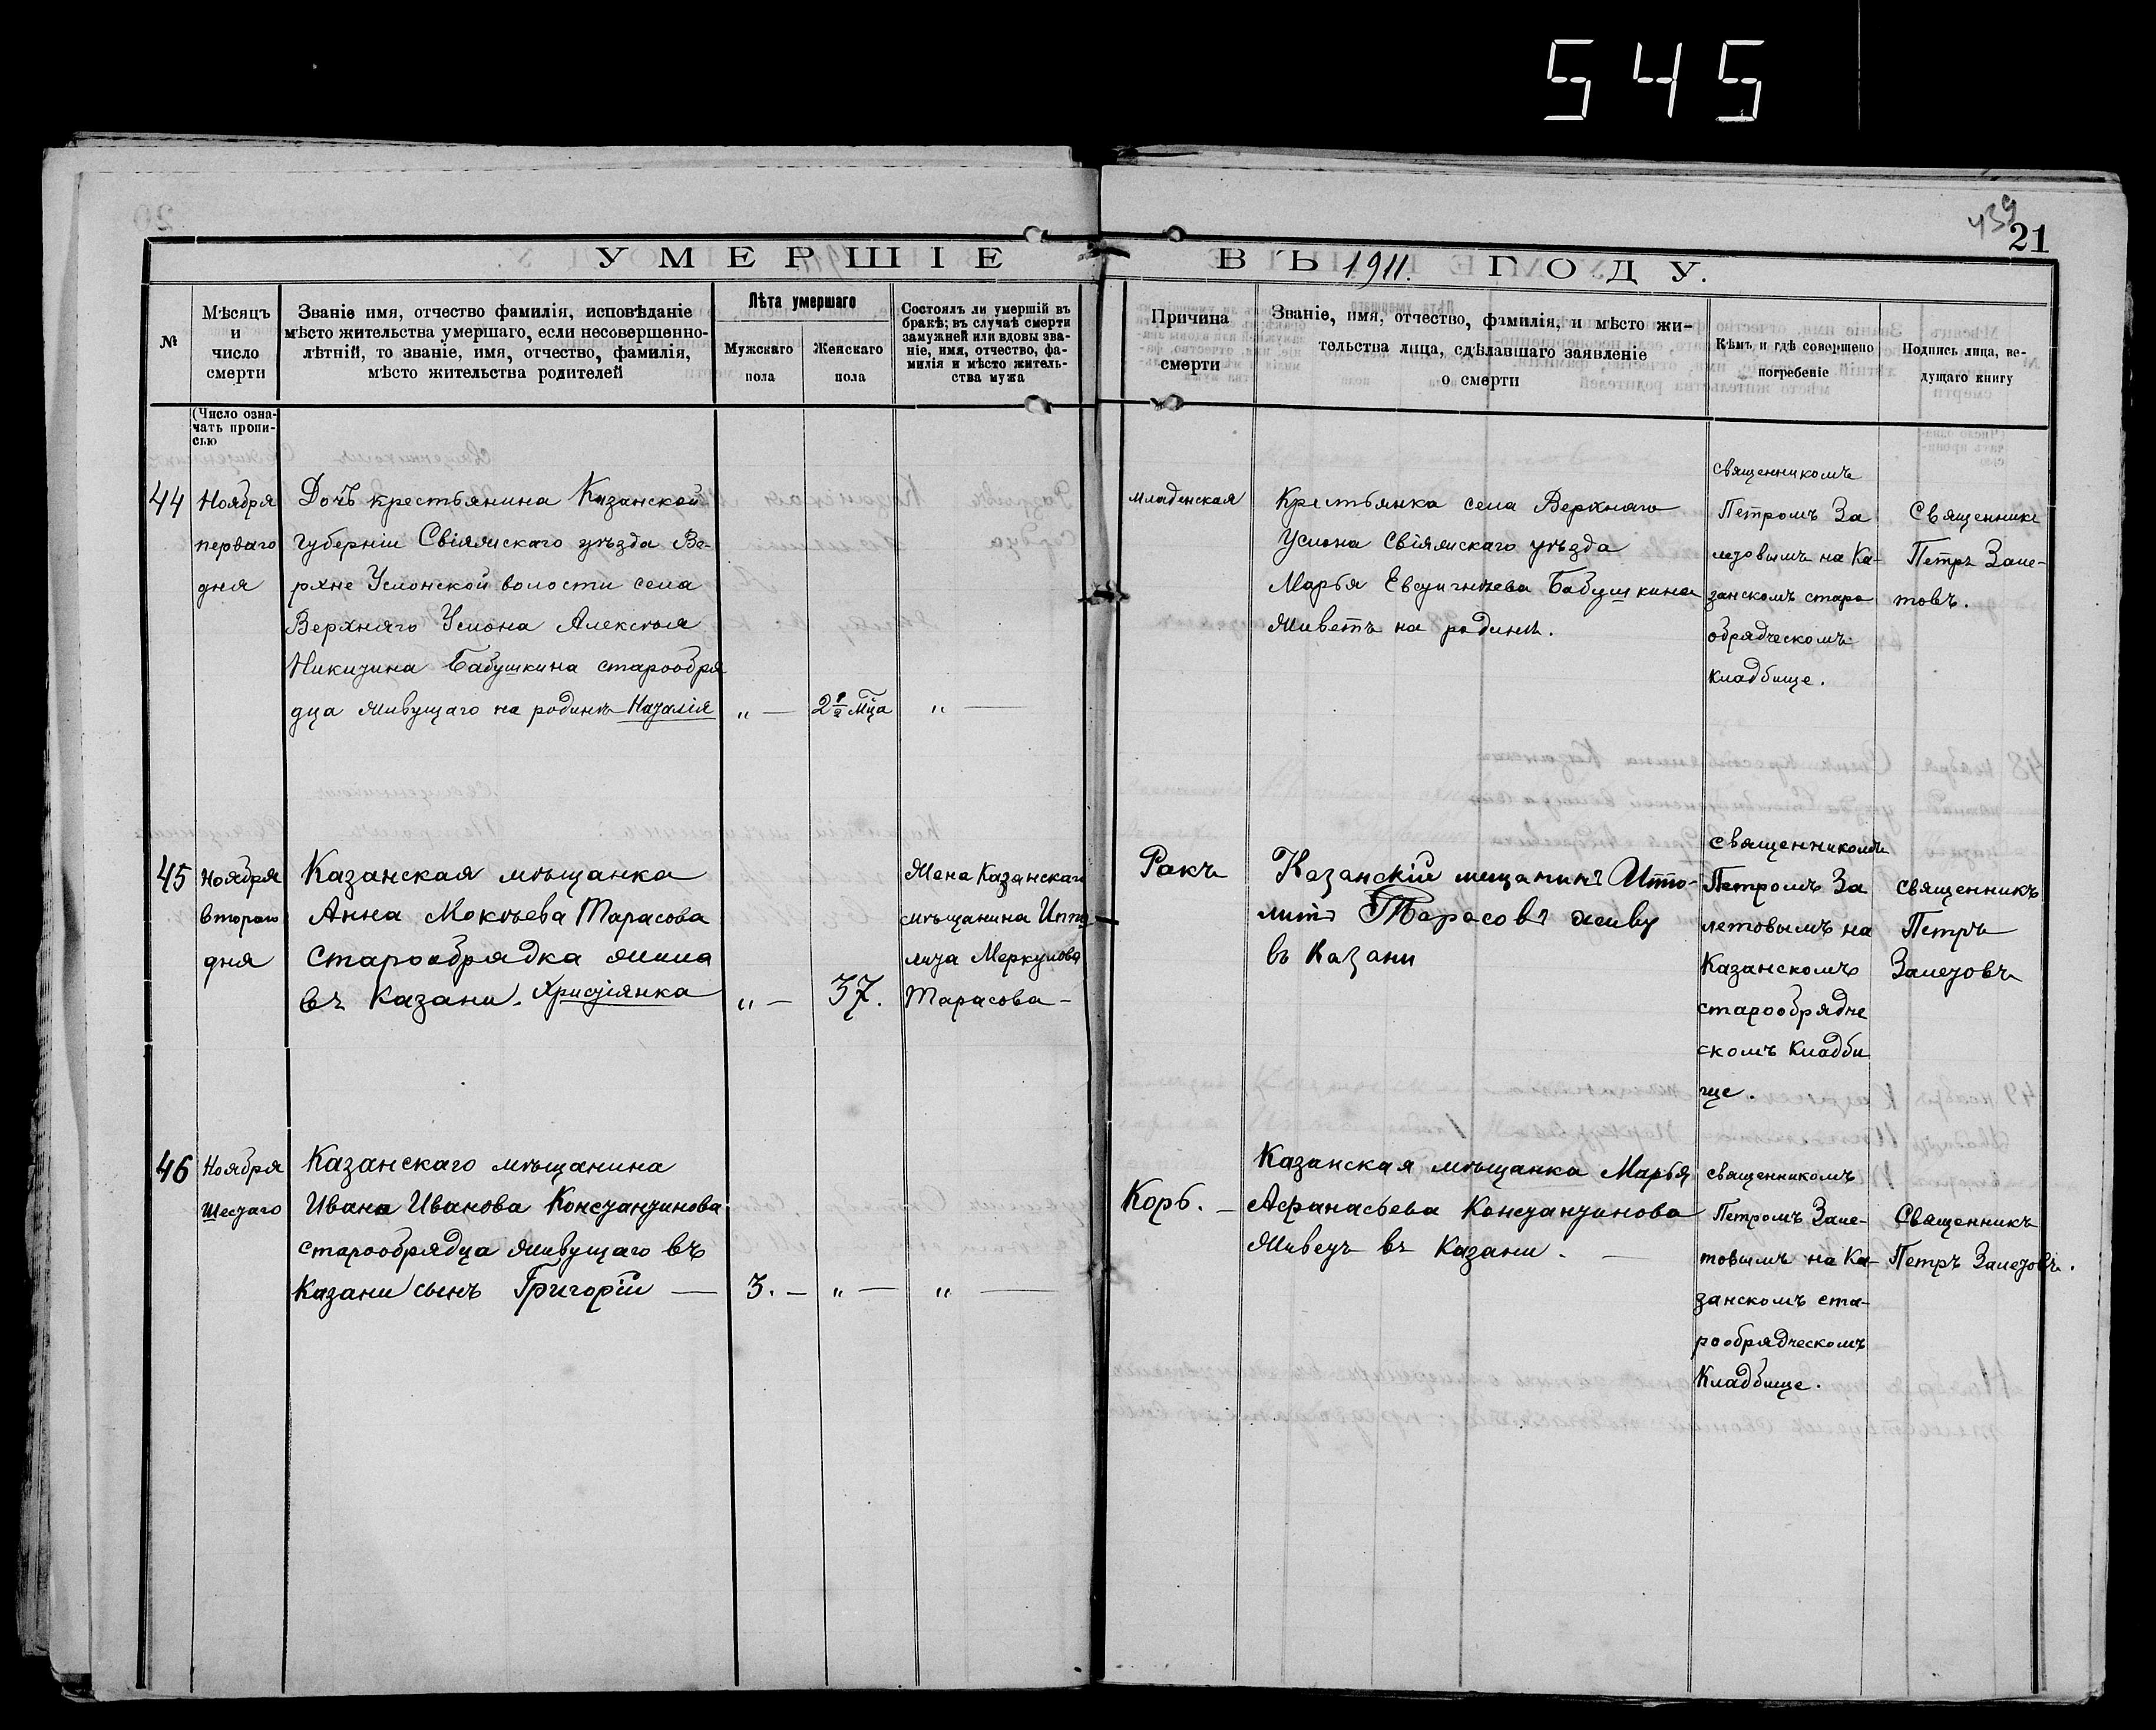 545
439
21
УМЕРШІЕ ВЪ 1911. ГОДУ.
№
Мѣсяцъ
и
число
смерти
Званіе имя, отчество фамилія, исповѣданіе
мѣсто жительства умершаго, если несовершенно-
лѣтній, то званіе, имя, отчество, фамилія,
мѣсто жительства родителей
Лѣта умершаго
Мужскаго
пола
Женскаго
пола
Состоялъ ли умершій въ
бракѣ; въ случаѣ смерти
замужней или вдовы зва-
ніе, имя, отчество, фа-
милія и мѣсто житель-
ства мужа
Причина
смерти
Званіе, имя, отчество, фамилія, и мѣсто жи-
тельства лица, сдѣлавшаго заявленіе
о смерти
Кѣмъ и гдѣ совершено
погребеніе
Подпись лица, ве-
дущаго книгу
(Число озна-
чать пропи-
сью
44
Ноября
перваго
дня
Дочь крестьянина Казанской
Губерніи Свіяжскаго уѣзда Ве-
рхне Услонской волости села
Верхняго Услона Алексѣя
Никитина Бабушкина старообря
дца живущаго на родинѣ Наталія
„ —
2 1/2 мца
„ —
Младенская
Крестьянка села Верхняго
Услона Свіяжскаго уѣзда
Марья Евстигнѣева Бабушкина
Живетъ на родинѣ.
священникомъ
Петромъ За
летовымъ на Ка-
занскомъ старо
обрядческомъ
кладбище.
Священникъ
Петръ Зале-
товъ.
45
Ноября
второго
дня
Казанская мѣщанка
Анна Мокѣева Тарасова
Старообрядка жила
въ Казани. Христіянка
„ —
37.
Жена Казанскаго
мѣщанина Иппо
лита Меркулова
Тарасова —
Ракъ
Казанскій мещанинъ Иппо-
литъ Тарасовъ живу
въ Казани
священникомъ
Петромъ За
летовымъ на
Казанскомъ
старообрядче
скомъ кладби
ще.
священникъ
Петръ
Залетовъ
46
Ноября
Шестаго
Казанскаго мѣщанина
Ивана Иванова Константинова
старообрядца живущаго въ
Казани сынъ Григорій —
3. —
„ —
„ —
Корь. —
Казанская мѣщанка Марья
Афанасьева Константинова
Живетъ въ Казани. —
священникомъ
Петромъ Зале-
товымъ на Ка-
занскомъ ста-
рообрядческомъ
Кладбище.
Священникъ
Петръ Залетовъ.